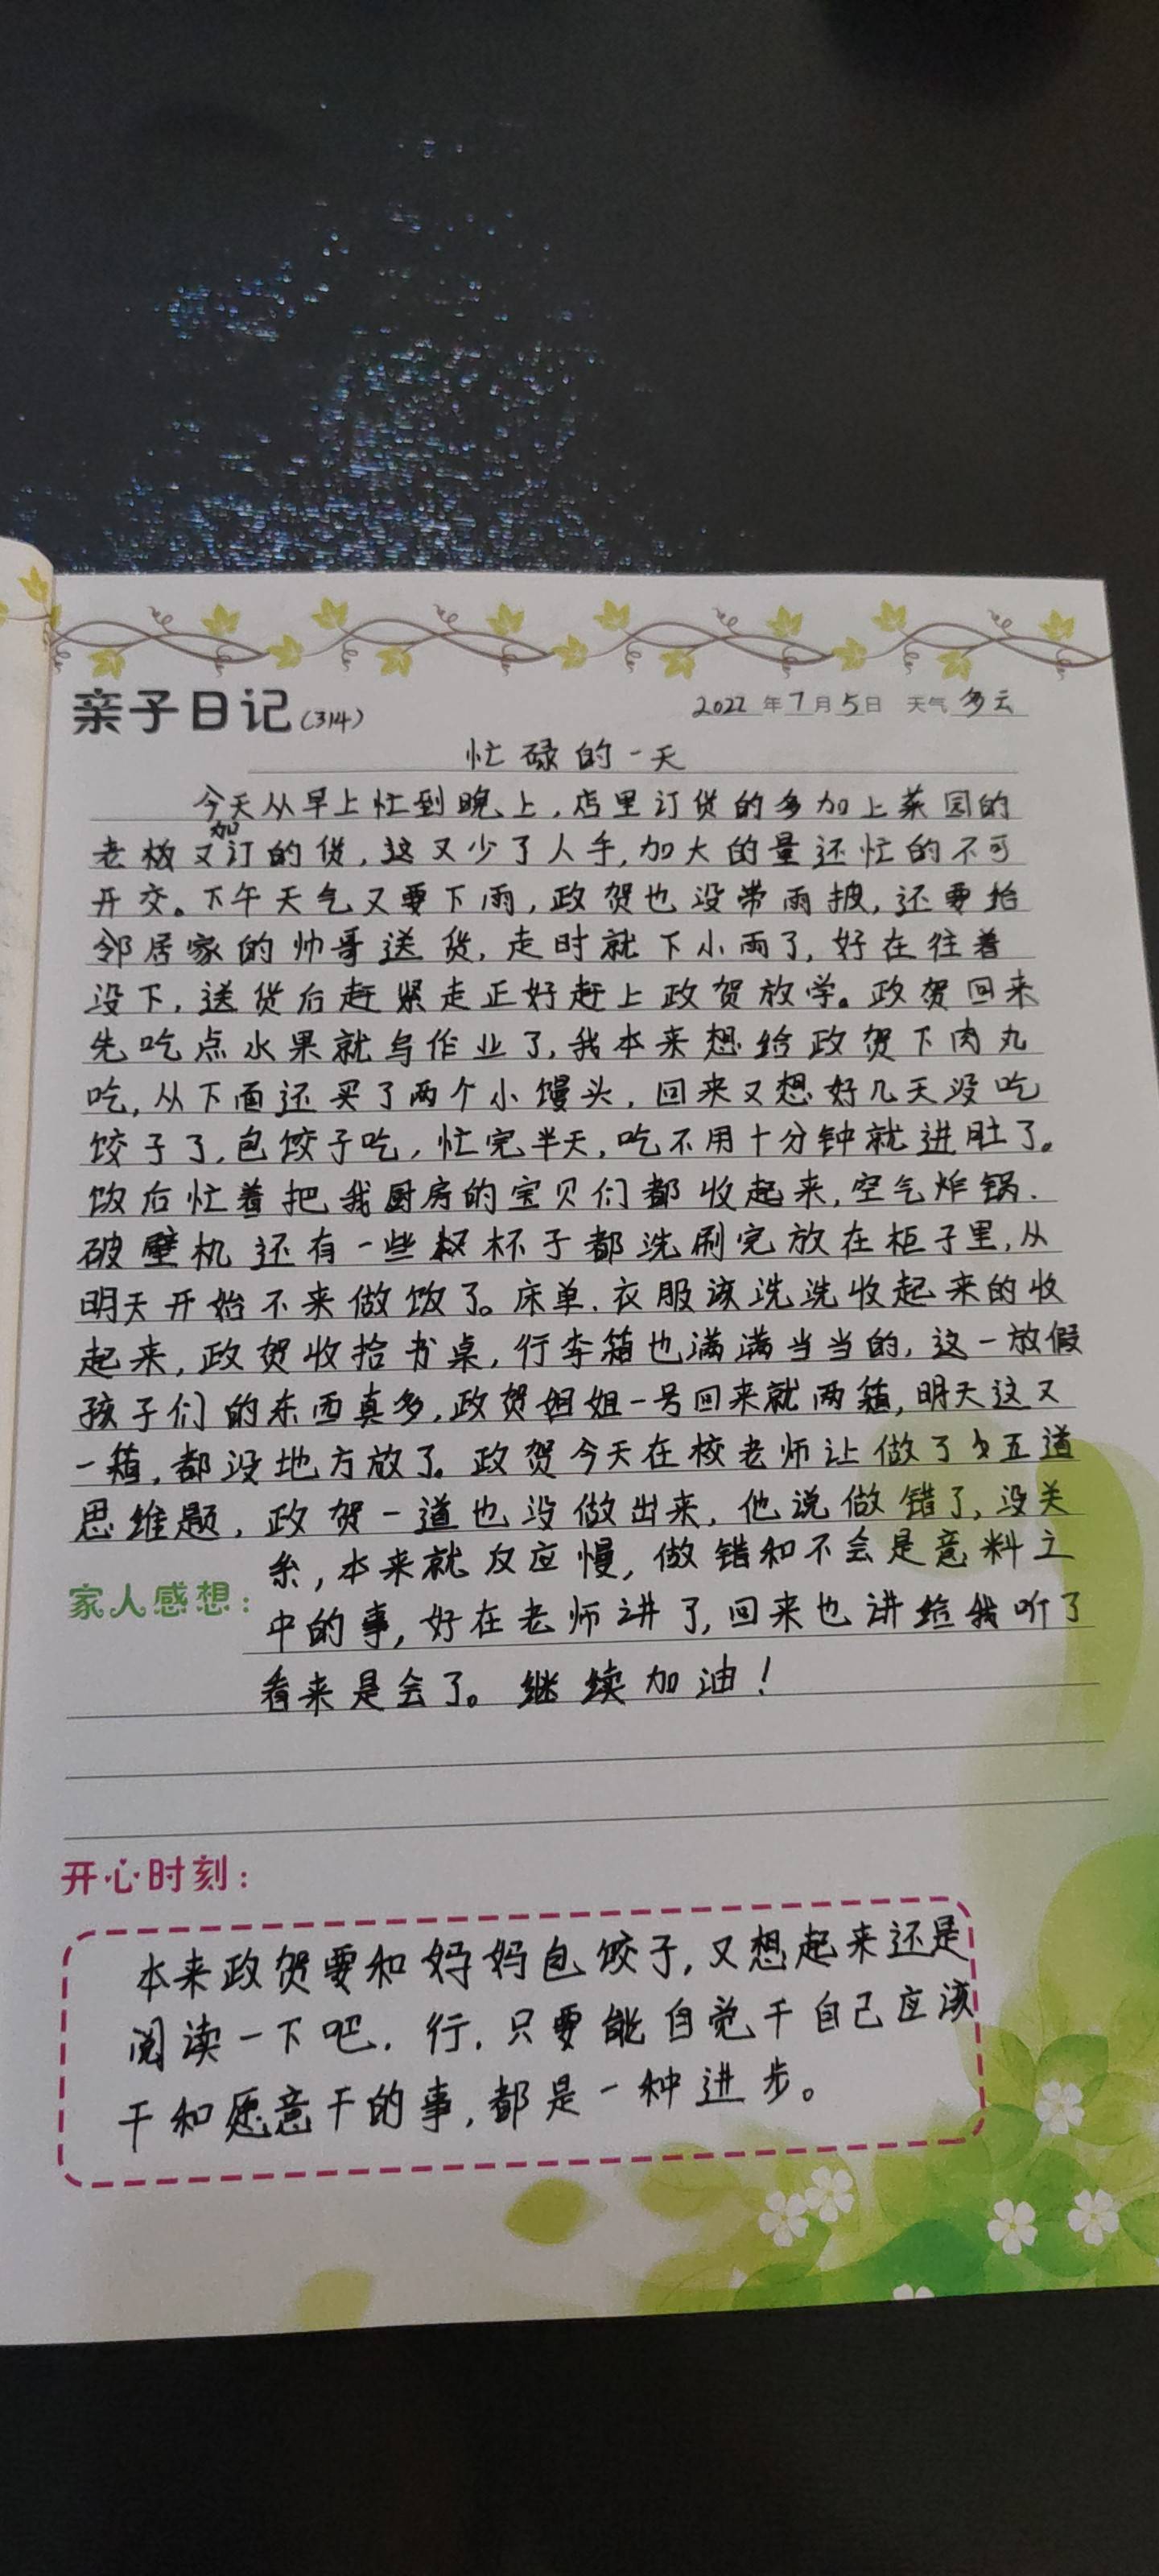 亲子日记(314) 2022年7月5日 天气 多云
忙碌的一天
今天从早上忙到晚上,店里订货的多加上菜园的
老板又加订的货,这又少了人手,加大的量还忙的不可
开交。下午天气又要下雨,政贺也没带雨披,还要给
邻居家的帅哥送货,走时就下小雨了,好在往着
没下,送货后赶紧走正好赶上政贺放学。政贺回来
先吃点水果就写作业了,我本来想给政贺下肉丸
吃,从下面还买了两个小馒头,回来又想好几天没吃
饺子了,包饺子吃,忙完半天,吃不用十分钟就进肚了。
饭后忙着把我厨房的宝贝们都收起来,空气炸锅、
破壁机还有一些杯子都洗刷完放在柜子里,从
明天开始不来做饭了。床单、衣服该洗洗收起来的收
起来,政贺收拾书桌,行李箱也满满当当的,这一放假
孩子们的东西真多,政贺姐姐一号回来就两箱,明天这又
一箱,都没地方放了。政贺今天在校老师让做了五道
思维题,政贺一道也没做出来,他说做错了,没关
系,本来就反应慢,做错和不会是意料之
家人感想:
中的事,好在老师讲了,回来也讲给我听了
看来是会了。继续加油!
开心时刻:
本来政贺要和妈妈包饺子,又想起来还是
阅读一下吧,行,只要能自觉干自己应该
干和愿意干的事,都是一种进步。